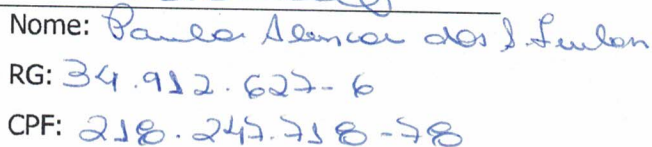 Nome: Paula Alencar dos S.
RG: 34.912.627-6
CPF: 218.247.718-78